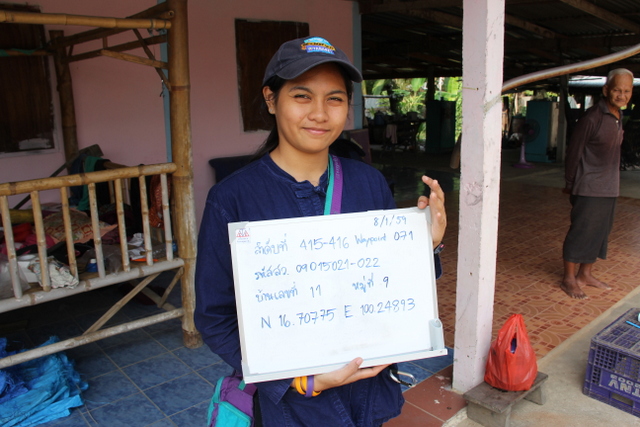 8/1/59
ลำดับที่ 415-416 Waypoint 071
รหัสสว. 09015021-022
บ้านเลขที่ 11 หมู่ที่ 9
N 16.70775 E 100.24893